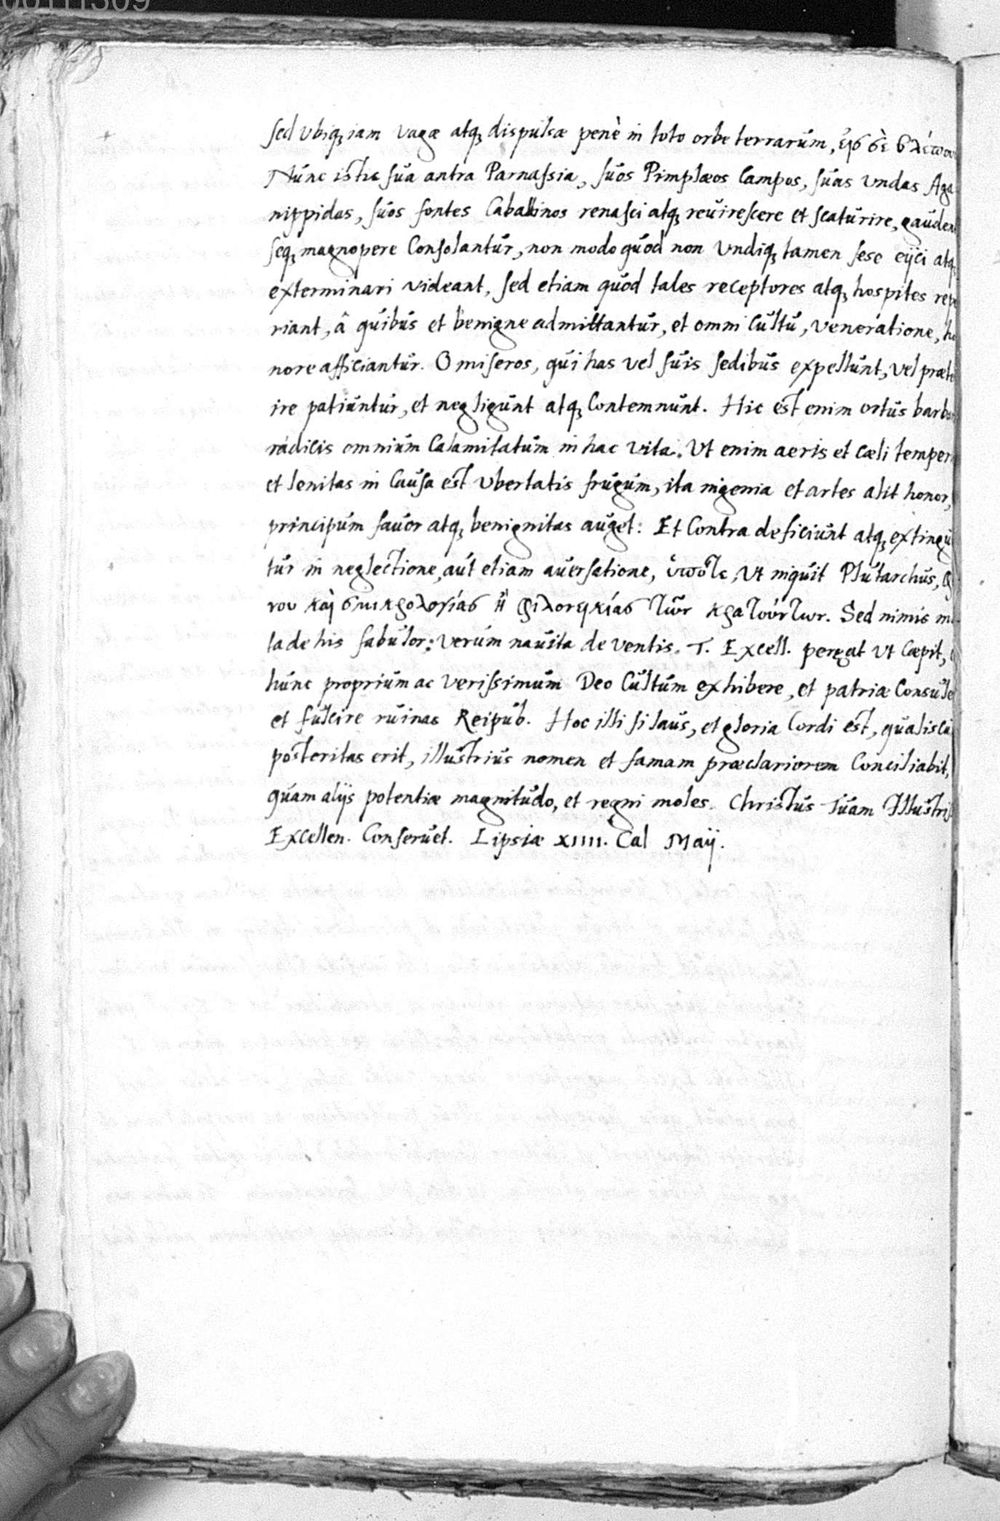 00111309
sed ubiq; iam vagæ atq; dispulsæ penè in toto orbe terrarũm, εἰς σὲ βλέπου
Nunc istic sua antra Parnassia, suos Pimplæos Campos, suas undas Aga
nippidas, suos fontes Caballinos renasci atq; reuirescere et scaturire, gauden
seq; magnopere Consolantur, non modo quod non Undiq; tamen sese eijci atq;
exterminari videant, sed etiam quod tales receptores atq; hospites repe
riant, â quibus et benigne admittantur, et omni Cultu, veneratione, ho
nore afficiantur. O miseros, qui has vel suis sedibus expellunt, vel præte
ire patiuntur, et negligunt atq; Contemnunt. Hic est enim ortus barba
radicis omnium Calamitatum in hac vita. Ut enim aeris et cæli temper
et lenitas in Causa est Ubertatis frugum, ita ingenia et artes alit honor,
principum fauor atq; benignitas auget: Et Contra deficiunt atq; extingu
tur in neglectione, aut etiam auersatione, Ut inquit Plutarchus,
νου καὶ σμικρολογίας ἢ φιλονεικίας τῶν κρατούντων. Sed nimis m
la de his fabulor: verum nauita de ventis. T. Excell. pergat Ut Cæpit,
hunc proprium ac verissimum Deo Cultum exhibere, et patriæ Consule
et fulcire ruinas Reipub. Hoc illi si laus, et gloria Cordi est, qualiscu
posteritas erit, illustrius nomen et famam præclariorem Conciliabit,
quam alijs potentiæ magnitudo, et regni moles. Christus Tuam Illustris
Excellen. Conseruet. Lipsiæ XIIII. Cal Maij.